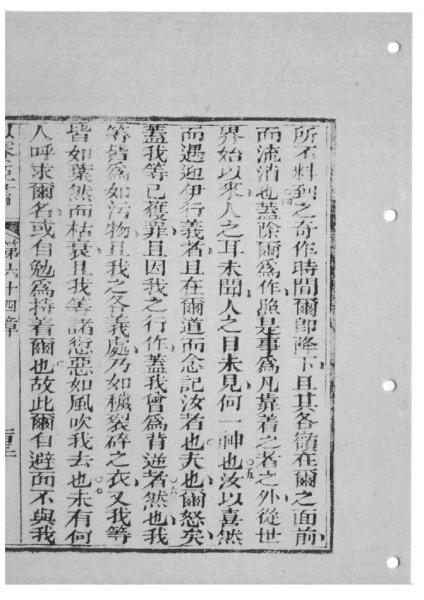 所不料到之奇作時間爾卽降下且其各嶺在爾之面前
四而流消也蓋除爾爲作照是事爲凡靠着之者之外從世
界始以來人之耳未聞人之目未見何一神也五汝以喜然
而遇迎伊行義者且在爾道而念記汝者也夫也爾怒矣
蓋我等已獲罪且因我之行作蓋我曾爲背逆者然也六我
等皆爲如污物且我之各義處乃如穢裂碎之衣又我等
皆如葉然而枯衰且我等諸愆惡如風吹我去也七未有何
人呼求爾名或自勉爲持着爾也故此爾自避面不與我
第六十四章